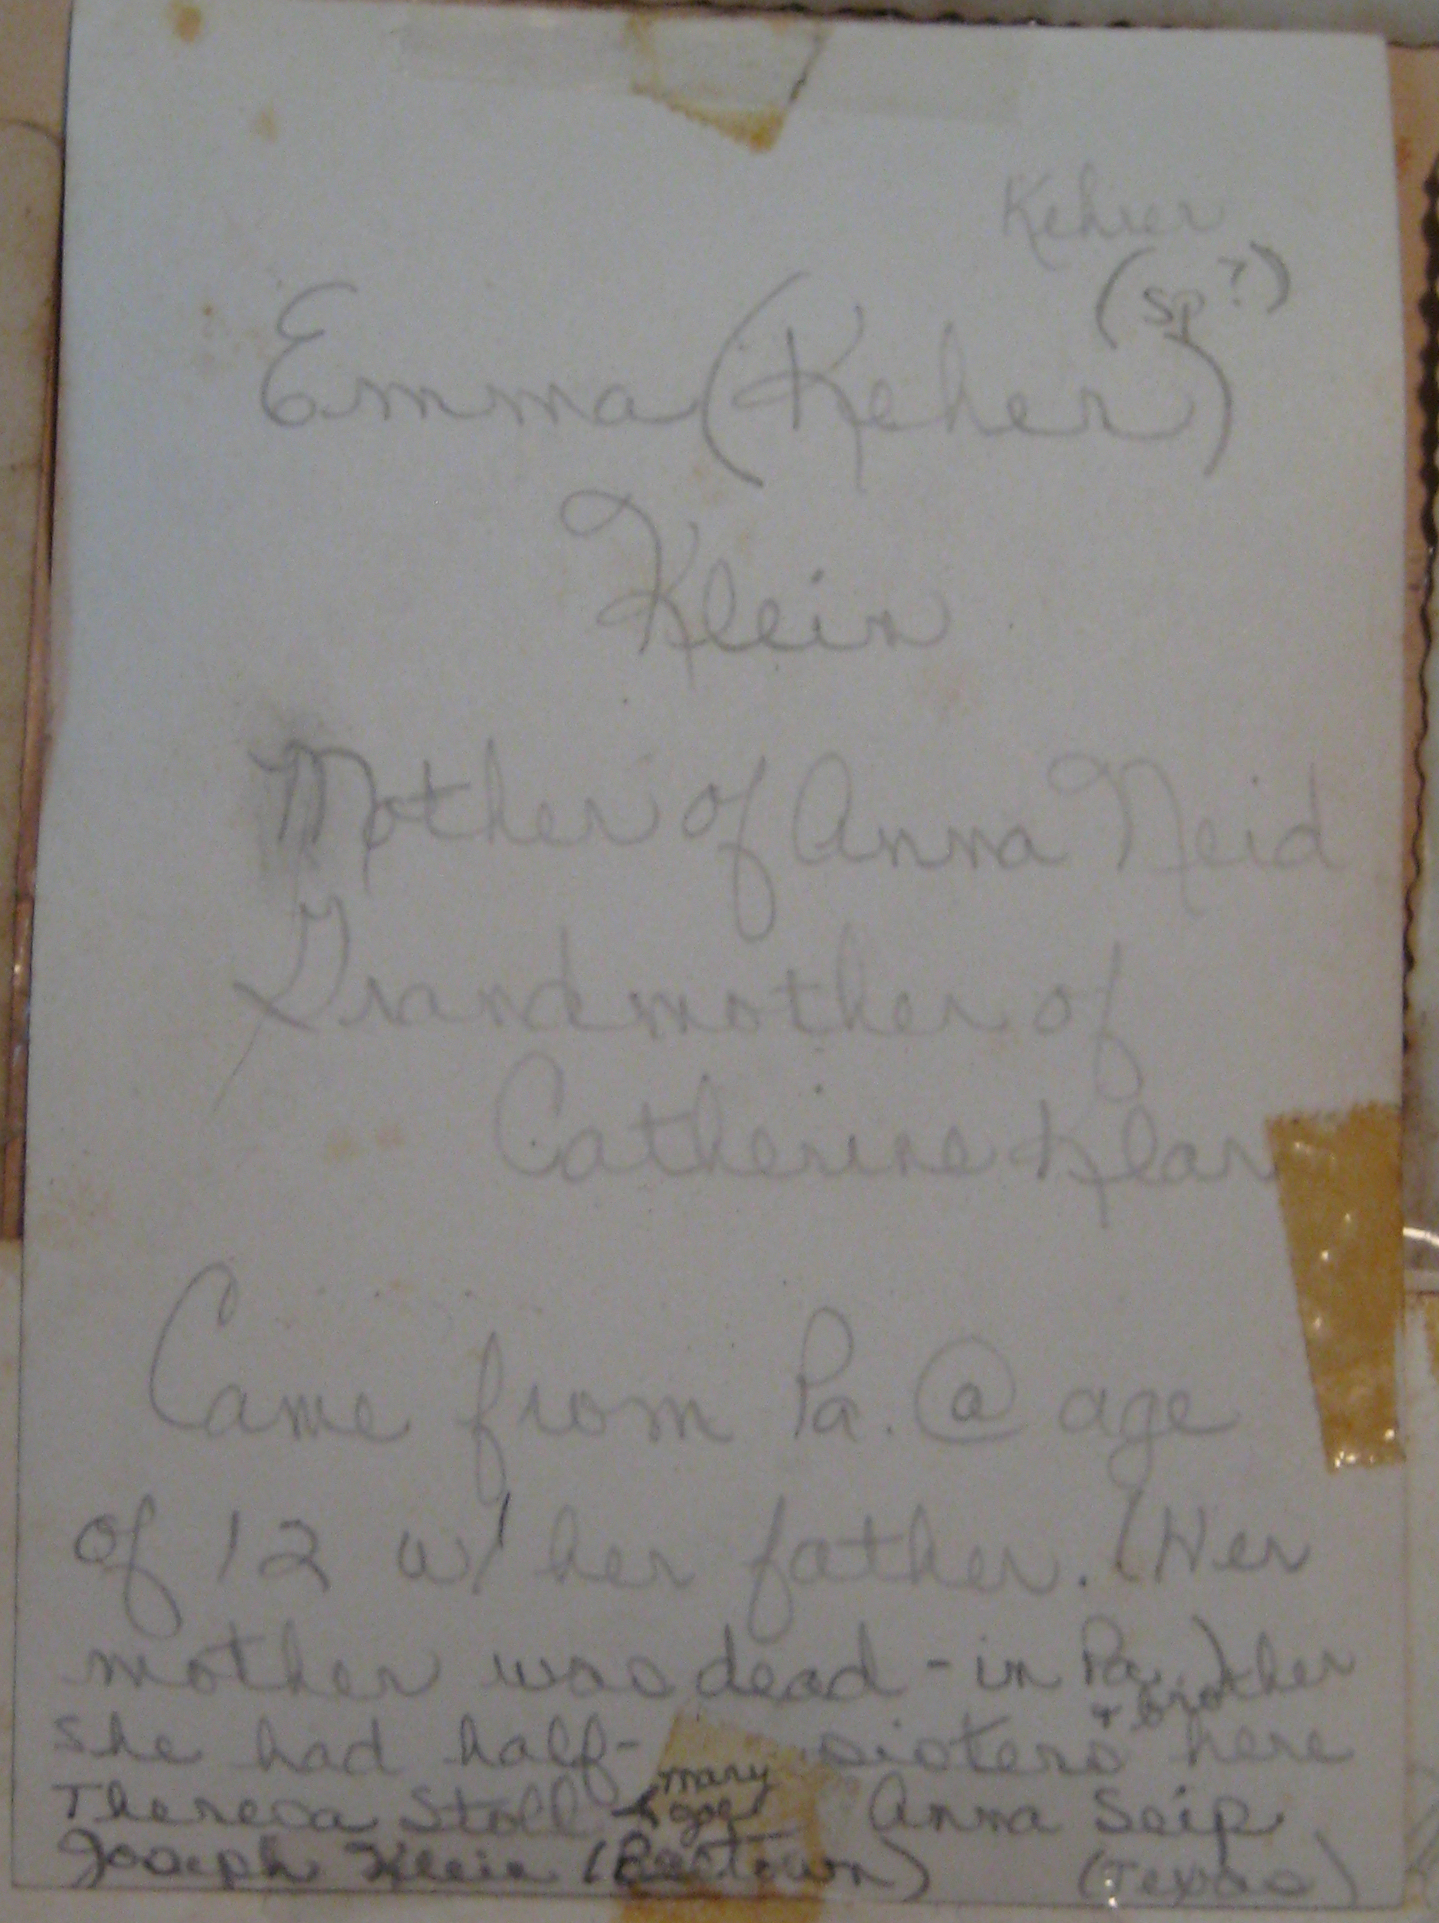 Kehrer
(sp?)
Emma (Keher)
Klein
Mother of Anna Neid
Grandmother of
Catherine Klar
Came from Pa. @ age
of 12 w/ her father. (Her
mother was dead - in Pa.)
+ brother
She had half- sisters here
Theresa Stoll Mary Anna Seip
Joseph Klein (Beetown) (Texas)